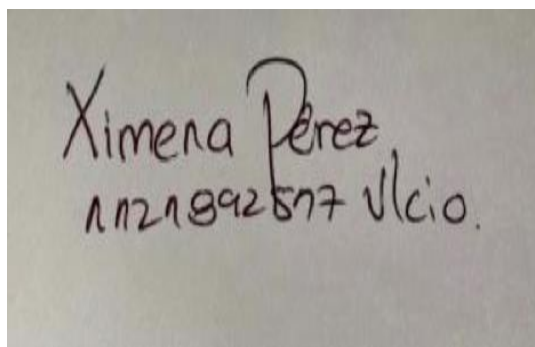 Ximena Pérez
1121892517 V/cio.